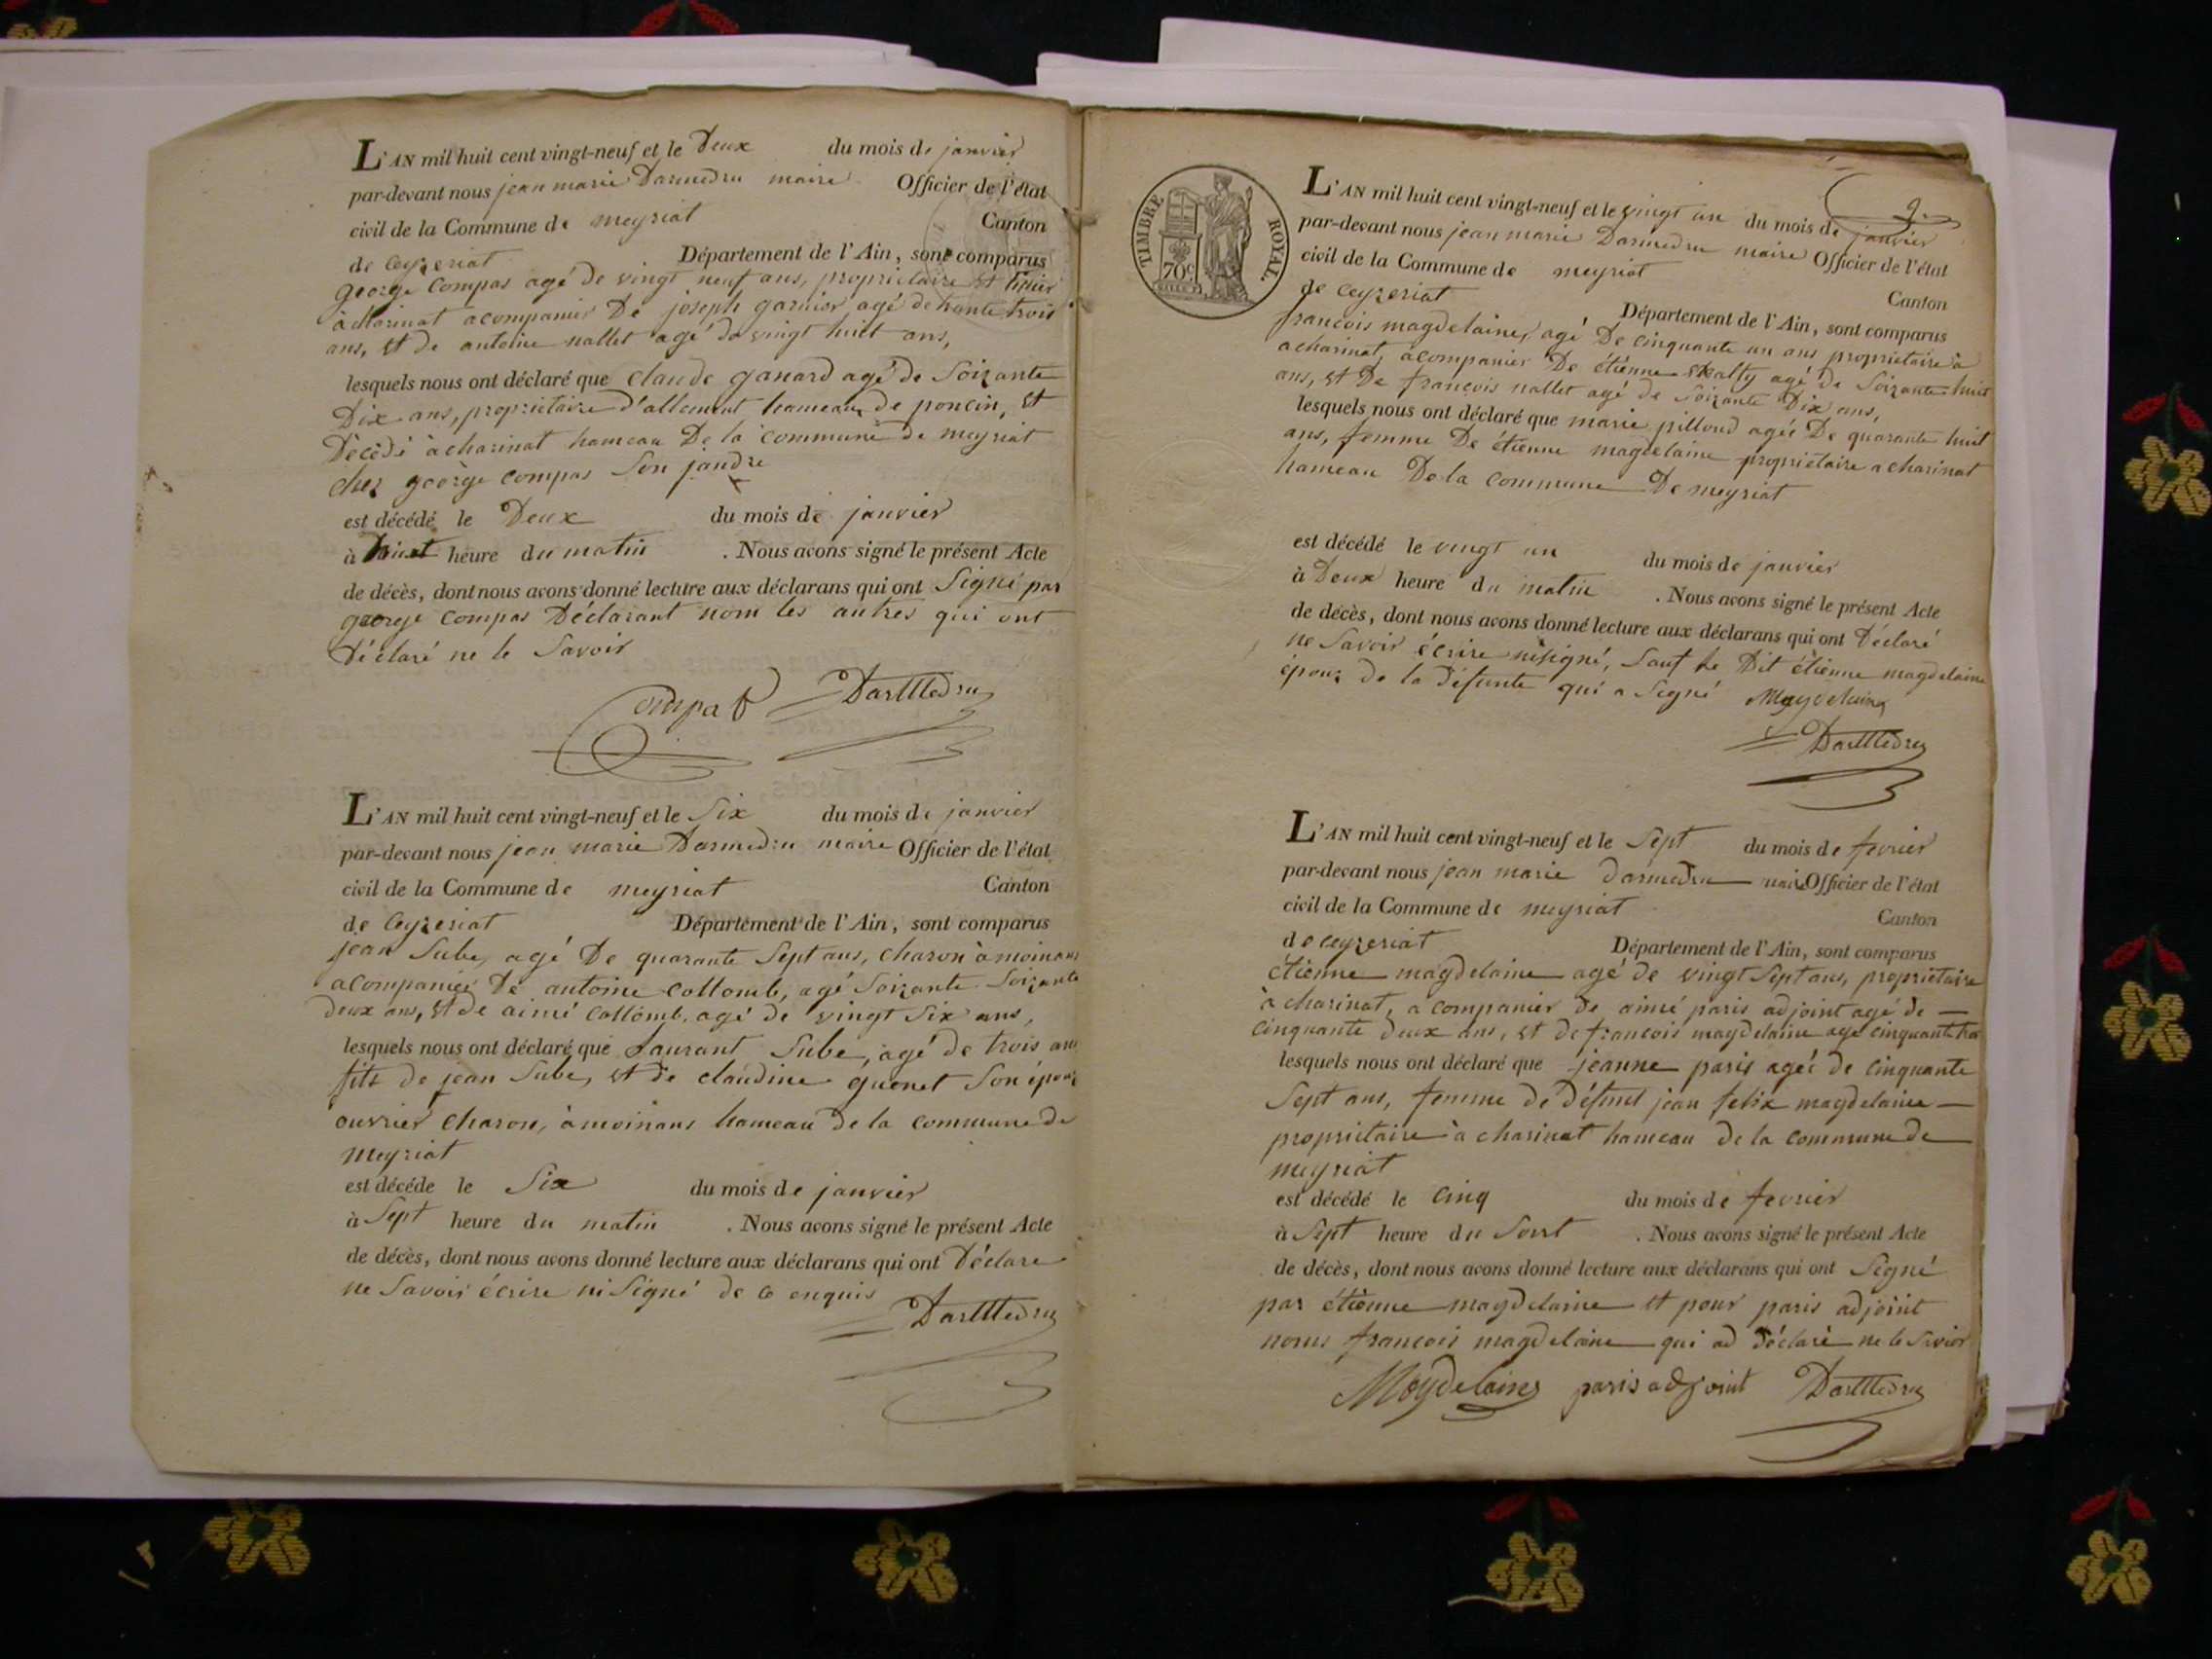 L'AN mil huit cent vingt-neuf et le Deux du mois de janvier
par-devant nous jean marie Darmedru maire Officier de l'état
civil de la Commune de meyriat Canton
de ceyzeriat Département de l'Ain, sont comparus
george Compas agé de vingt neuf ans, propriétaire et
à charinat acompanier De joseph garnier agé de trante trois
ans, et de antoine nallet agé de vingt huit ans,
lesquels nous ont déclaré que claude ganard agé de Soixante
Dix ans, propriétaire d'allement hameau de poncin, et
Décédé à charinat hameau De la commune de meyriat
chez george compas Son jandre
est décédé le Deux du mois de janvier
à heure du matin . Nous avons signé le présent Acte
de décès, dont nous avons donné lecture aux déclarans qui ont Signé par
george compas Déclarant nom les autres qui ont
Déclaré ne le Savoir
Compas Darmedru
L'AN mil huit cent vingt-neuf et le Six du mois de janvier
par-devant nous jean marie Darmedru maire Officier de l'état
civil de la Commune de meyriat Canton
de Ceyzeriat Département de l'Ain, sont comparus
jean Sube, agé De quarante Sept ans, charon à moinans
acompanier De antoine collomb, agé Soixante Soixante
deux ans, et de aimé collomb, agé de vingt Six ans,
lesquels nous ont déclaré que Laurant Sube, agé de trois ans
fils de jean Sube, et de claudine guenet Son épouz
ouvrier charon, à moinans hameau de la commune de
meyriat
est décéde le Six du mois de janvier
à Sept heure du matin . Nous avons signé le présent Acte
de décès, dont nous avons donné lecture aux déclarans qui ont Déclare
ne Savoir écrire ni Signé de ce enquis
Darmedru
2
TIMBRE ROYAL
70c
L'AN mil huit cent vingt-neuf et le vingt un du mois de janvier
par-devant nous jean marie Darmedru maire Officier de l'état
civil de la Commune de meyriat Canton
de ceyzeriat Département de l'Ain, sont comparus
francois magdelaine, agé De cinquante un ans propriétaire à
a charinat, acompanier De étienne agé De Soixante huit
ans, et De francois nallet agé de Soixante Dix ans,
lesquels nous ont déclaré que marie pilloud agée De quarante huit
ans, femme De étienne magdelaine propriétaire a charinat
hameau De la commune De meyriat
est décédé le vingt un du mois de janvier
à Deux heure du matin . Nous avons signé le présent Acte
de décès, dont nous avons donné lecture aux déclarans qui ont Déclaré
ne Savoir écrire ni signé, Sauf le Dit étienne magdelaine
épouz De la Défunte qui a Signé Magdelaine
Darmedru
L'AN mil huit cent vingt-neuf et le Sept du mois de fevrier
par-devant nous jean marie darmedru maire Officier de l'état
civil de la Commune de meyriat Canton
de ceyzeriat Département de l'Ain, sont comparus
étienne magdelaine agé de vingt Sept ans, propriétaire
à charinat, acompanier de aimé paris adjoint agé de
cinquante deux ans, et de francois magdelaine agé cinquante
lesquels nous ont déclaré que jeanne paris agée de cinquante
Sept ans, femme de Défunt jean felix magdelaine
propriétaire à charinat hameau de la commune de
meyriat
est décédé le cinq du mois de fevrier
à Sept heure du . Nous avons signé le présent Acte
de décès, dont nous avons donné lecture aux déclarans qui ont Signé
par étienne magdelaine et pour paris adjoint
francois magdelaine qui ad Déclaré ne le
Magdelaine paris adjoint Darmedru